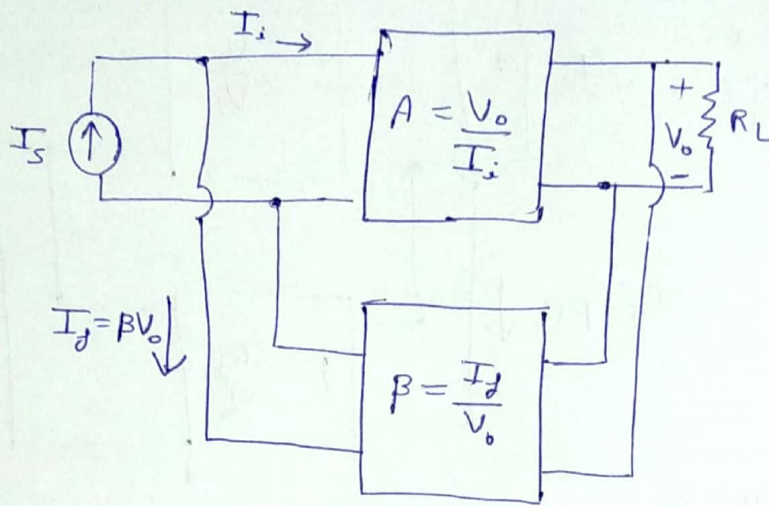 I_i →
I_s
A = V_o / I_i
+
V_o
-
R_L
I_f = βV_o ↓
β = I_f / V_o